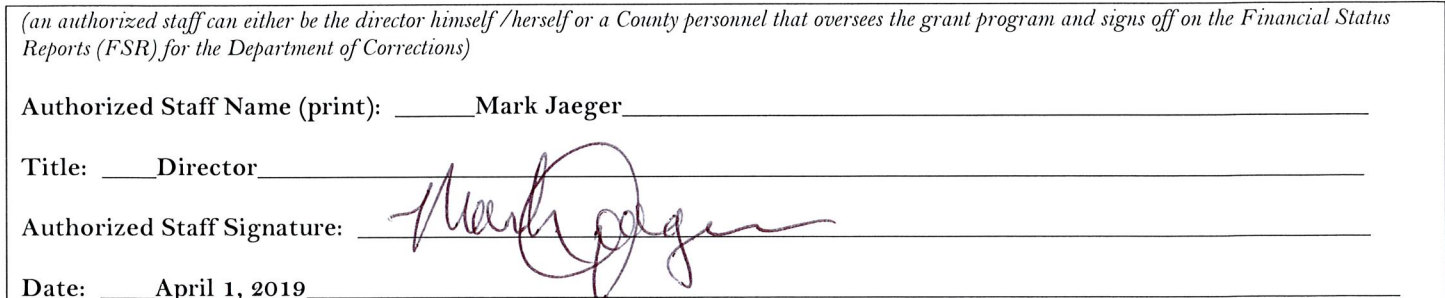 (an authorized staff can either be the director himself/herself or a County personnel that oversees the grant program and signs off on the Financial Status
Reports (FSR) for the Department of Corrections)
Authorized Staff Name (print): ______Mark Jaeger______
Title: ____Director______
Authorized Staff Signature: Mark Jaeger
Date: ____April 1, 2019______